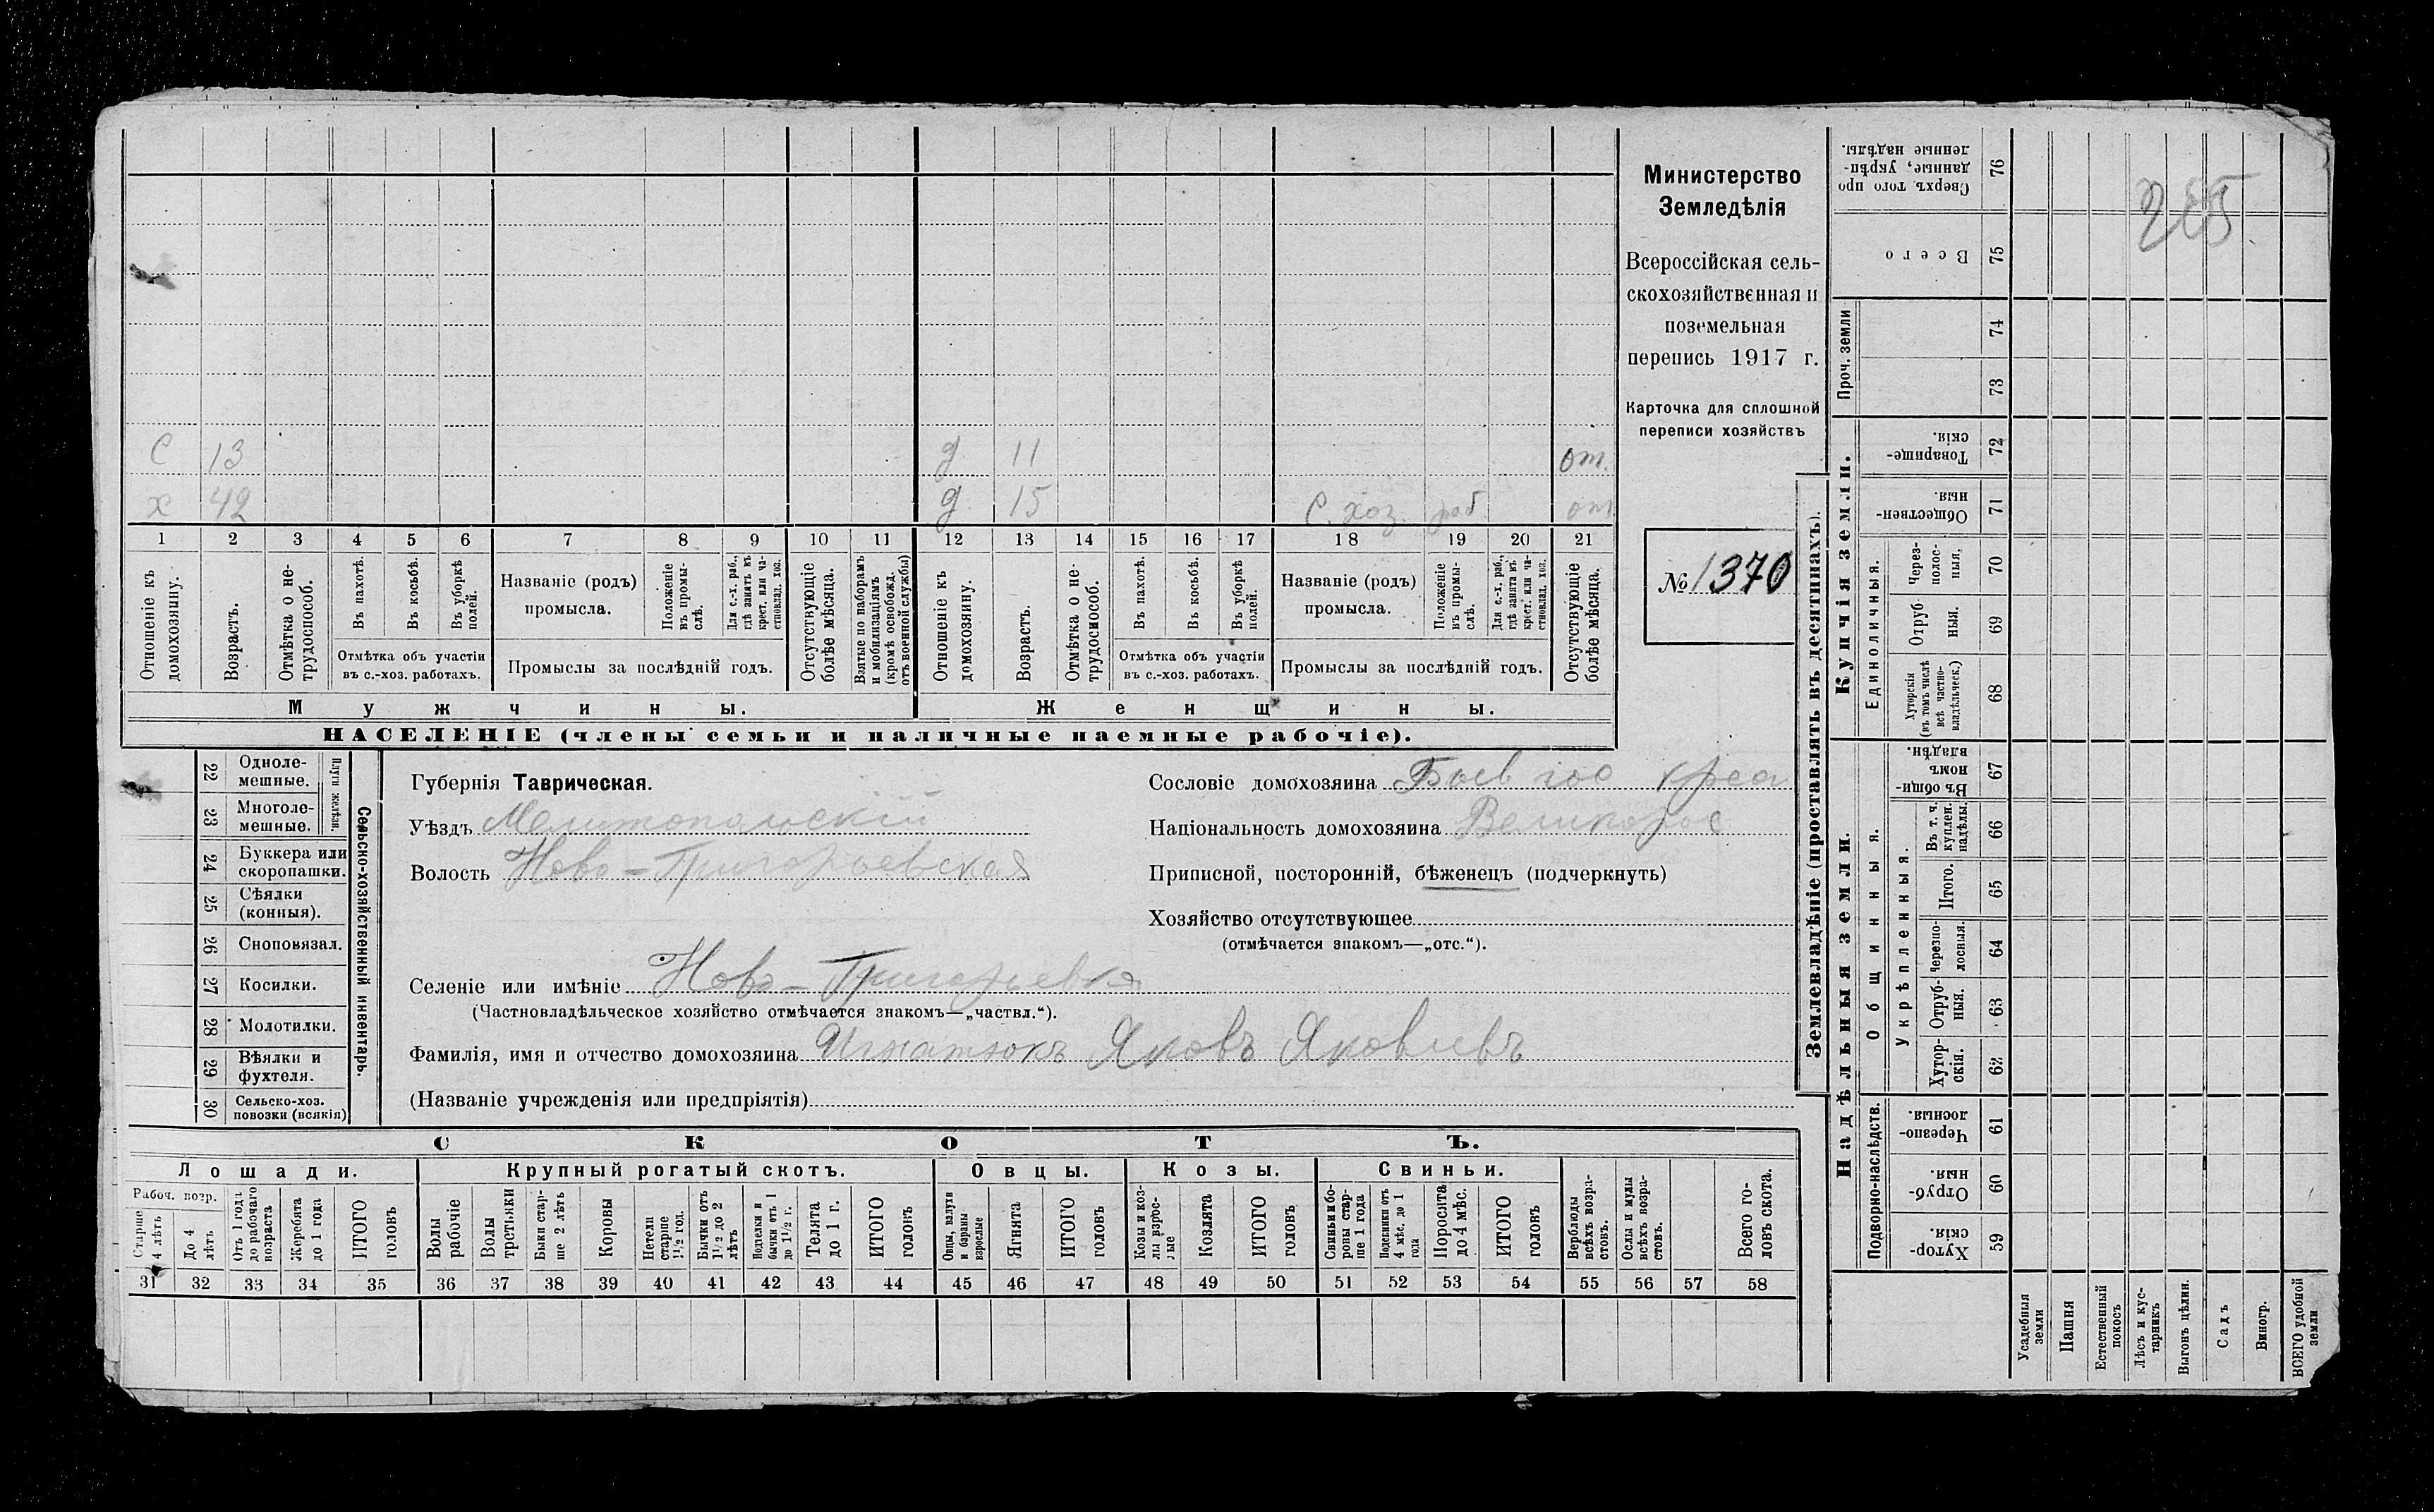 С 13 д 11 от.
х 42 д 15 С. хоз. раб от
1 2 3 4 5 6 7 8 9 10 11 12 13 14 15 16 17 18 19 20 21
Отношеніе къ домохозяину.
Возрастъ.
Отмѣтка о не-
трудоспособ.
Въ пахотѣ.
Въ косьбѣ.
Въ уборкѣ
полей.
Отмѣтка объ участіи
въ с.-хоз. работахъ.
Названіе (родъ)
промысла.
Положеніе
въ промы-
слѣ.
Для с.-х. раб.,
гдѣ занятъ въ
крест. или ча-
стновлад. хоз.
Промыслы за послѣдній годъ.
Отсутствующіе
болѣе мѣсяца.
Взятые по наборамъ
и мобилизаціямъ
(кромѣ освобожд.
отъ военной службы)
Отношеніе къ
домохозяину.
Возрастъ.
Отмѣтка о не-
трудоспособ.
Въ пахотѣ.
Въ косьбѣ.
Въ уборкѣ
полей.
Отмѣтка объ участіи
въ с.-хоз. работахъ.
Названіе (родъ)
промысла.
Положеніе
въ промы-
слѣ.
Для с.-х. раб.,
гдѣ занята въ
крест. или ча-
стновлад. хоз.
Промыслы за послѣдній годъ.
Отсутствующіе
болѣе мѣсяца.
Мужчины.
Женщины.
НАСЕЛЕНІЕ (члены семьи и наличные наемные рабочіе).
Министерство
Земледѣлія
Всероссійская сель-
скохозяйственная и
поземельная
перепись 1917 г.
Карточка для сплошной
переписи хозяйствъ
№ 1370
22 Одноле-
мешные.
23 Многоле-
мешные.
Плуги желѣзн.
24 Буккера или
скоропашки.
25 Сѣялки
(конныя).
26 Сноповязал.
27 Косилки.
28 Молотилки.
29 Вѣялки и
фухтеля.
30 Сельско-хоз.
повозки (всякія)
Сельско-хозяйственный инвентарь.
Губернія Таврическая.
Уѣздъ Мелитопольскій
Волость Ново-Григорьевская
Сословіе домохозяина
Національность домохозяина Великорос
Приписной, посторонній, бѣженецъ (подчеркнуть)
Хозяйство отсутствующее
(отмѣчается знакомъ—„отс.“).
Селеніе или имѣніе Ново-Григорьевка
(Частновладѣльческое хозяйство отмѣчается знакомъ—„частвл.“).
Фамилія, имя и отчество домохозяина Игнатюкъ Яковъ Яковлевъ
(Названіе учрежденія или предпріятія)
СКОТЪ.
Лошади.
Крупный рогатый скотъ.
Овцы.
Козы.
Свиньи.
Рабоч. возр.
Старше
4 лѣтъ
До 4
лѣтъ
Отъ 1 года
до рабочаго
возраста
Жеребята
до 1 года
ИТОГО
головъ
Волы
рабочіе
Волы
третьяки
Быки стар-
ше 2 лѣтъ
Коровы
Нетели
старше
1½ год.
Бычки отъ
1½ до 2
лѣтъ
Подтелки и
бычки отъ 1
до 1½ г.
Телята
до 1 г.
ИТОГО
головъ
Овцы, валухи
и бараны
взрослые
Ягнята
ИТОГО
головъ
Козы и коз-
лы взрос-
лые
Козлята
ИТОГО
головъ
Свиньи и бо-
ровы стар-
ше 1 года
Подсвинки отъ
4 мѣс. до 1
года
Поросята
до 4 мѣс.
ИТОГО
головъ
Верблюды
всѣхъ возра-
стовъ.
Ослы и мулы
всѣхъ возра-
стовъ.
Всего го-
ловъ скота.
31 32 33 34 35 36 37 38 39 40 41 42 43 44 45 46 47 48 49 50 51 52 53 54 55 56 57 58
Землевладѣніе (проставлять въ десятинахъ).
Купчія земли.
Надѣльныя земли.
Сверхъ того про
данные, укрѣп-
ленные надѣлы.
76
Всего
75
Проч. земли
74
73
Товарище-
скія.
72
Обществен-
ныя
71
Единоличныя.
Через-
полос-
ныя.
70
Отруб-
ныя.
69
Хуторскія
(въ томъ числѣ
всѣ частно-
владѣльческ.)
68
Общинныя.
Въ общи-
номъ
владѣн.
67
Укрѣпленныя.
Въ т. ч.
куплен.
надѣлы.
66
Итого.
65
Черезпо-
лосныя.
64
Отруб-
ныя.
63
Хутор-
скія.
62
Подворно-наслѣдств.
Черезпо-
лосныя.
61
Отруб-
ныя.
60
Хутор-
скія.
59
Усадебныя
земли
Пашня
Естественный
покосъ
Лѣсъ и кус-
тарникъ
Выгонъ цѣлин.
Садъ
Виногр.
ВСЕГО удобной
земли